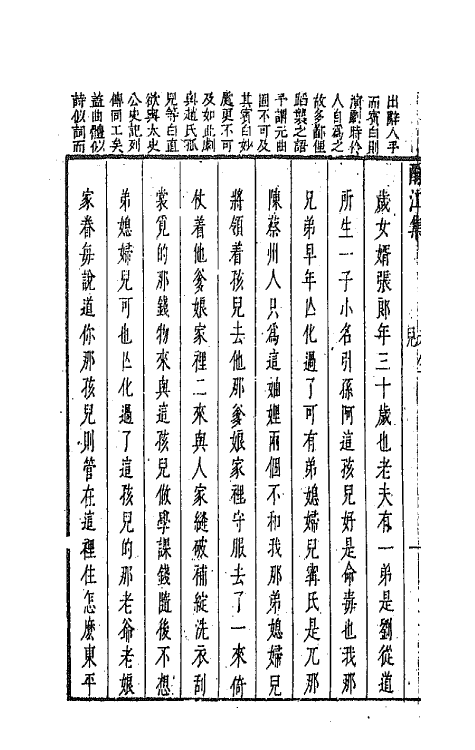 出辭人手
而賓白則
演劇時伶
人自為之
故多鄙俚
蹈襲之語
予謂元曲
固不可及
其賓白妙
處更不可
及如此劇
與趙氏孤
兒等白直
欲與太史
公史記列
傳同工矣
蓋曲體似
詩似詞而
酹江集
兒
歲女婿張郎年三十歲也老夫有一弟是劉從道
所生一子小名引孫阿這孩兒好是命毒也我那
兄弟早年亡化過了可有弟媳婦兒寗氏是兀那
陳蔡州人只為這妯娌兩個不和我那弟媳婦兒
將領着孩兒去他那爹娘家裡守服去了一來倚
仗着他爹娘家裡二來與人家縫破補綻洗衣刮
裳覓的那錢物來與這孩兒做學課錢隨後不想
弟媳婦兒可也亡化過了這孩兒的那老爺老娘
家眷每說道你那孩兒則管在這裡住怎麽東平